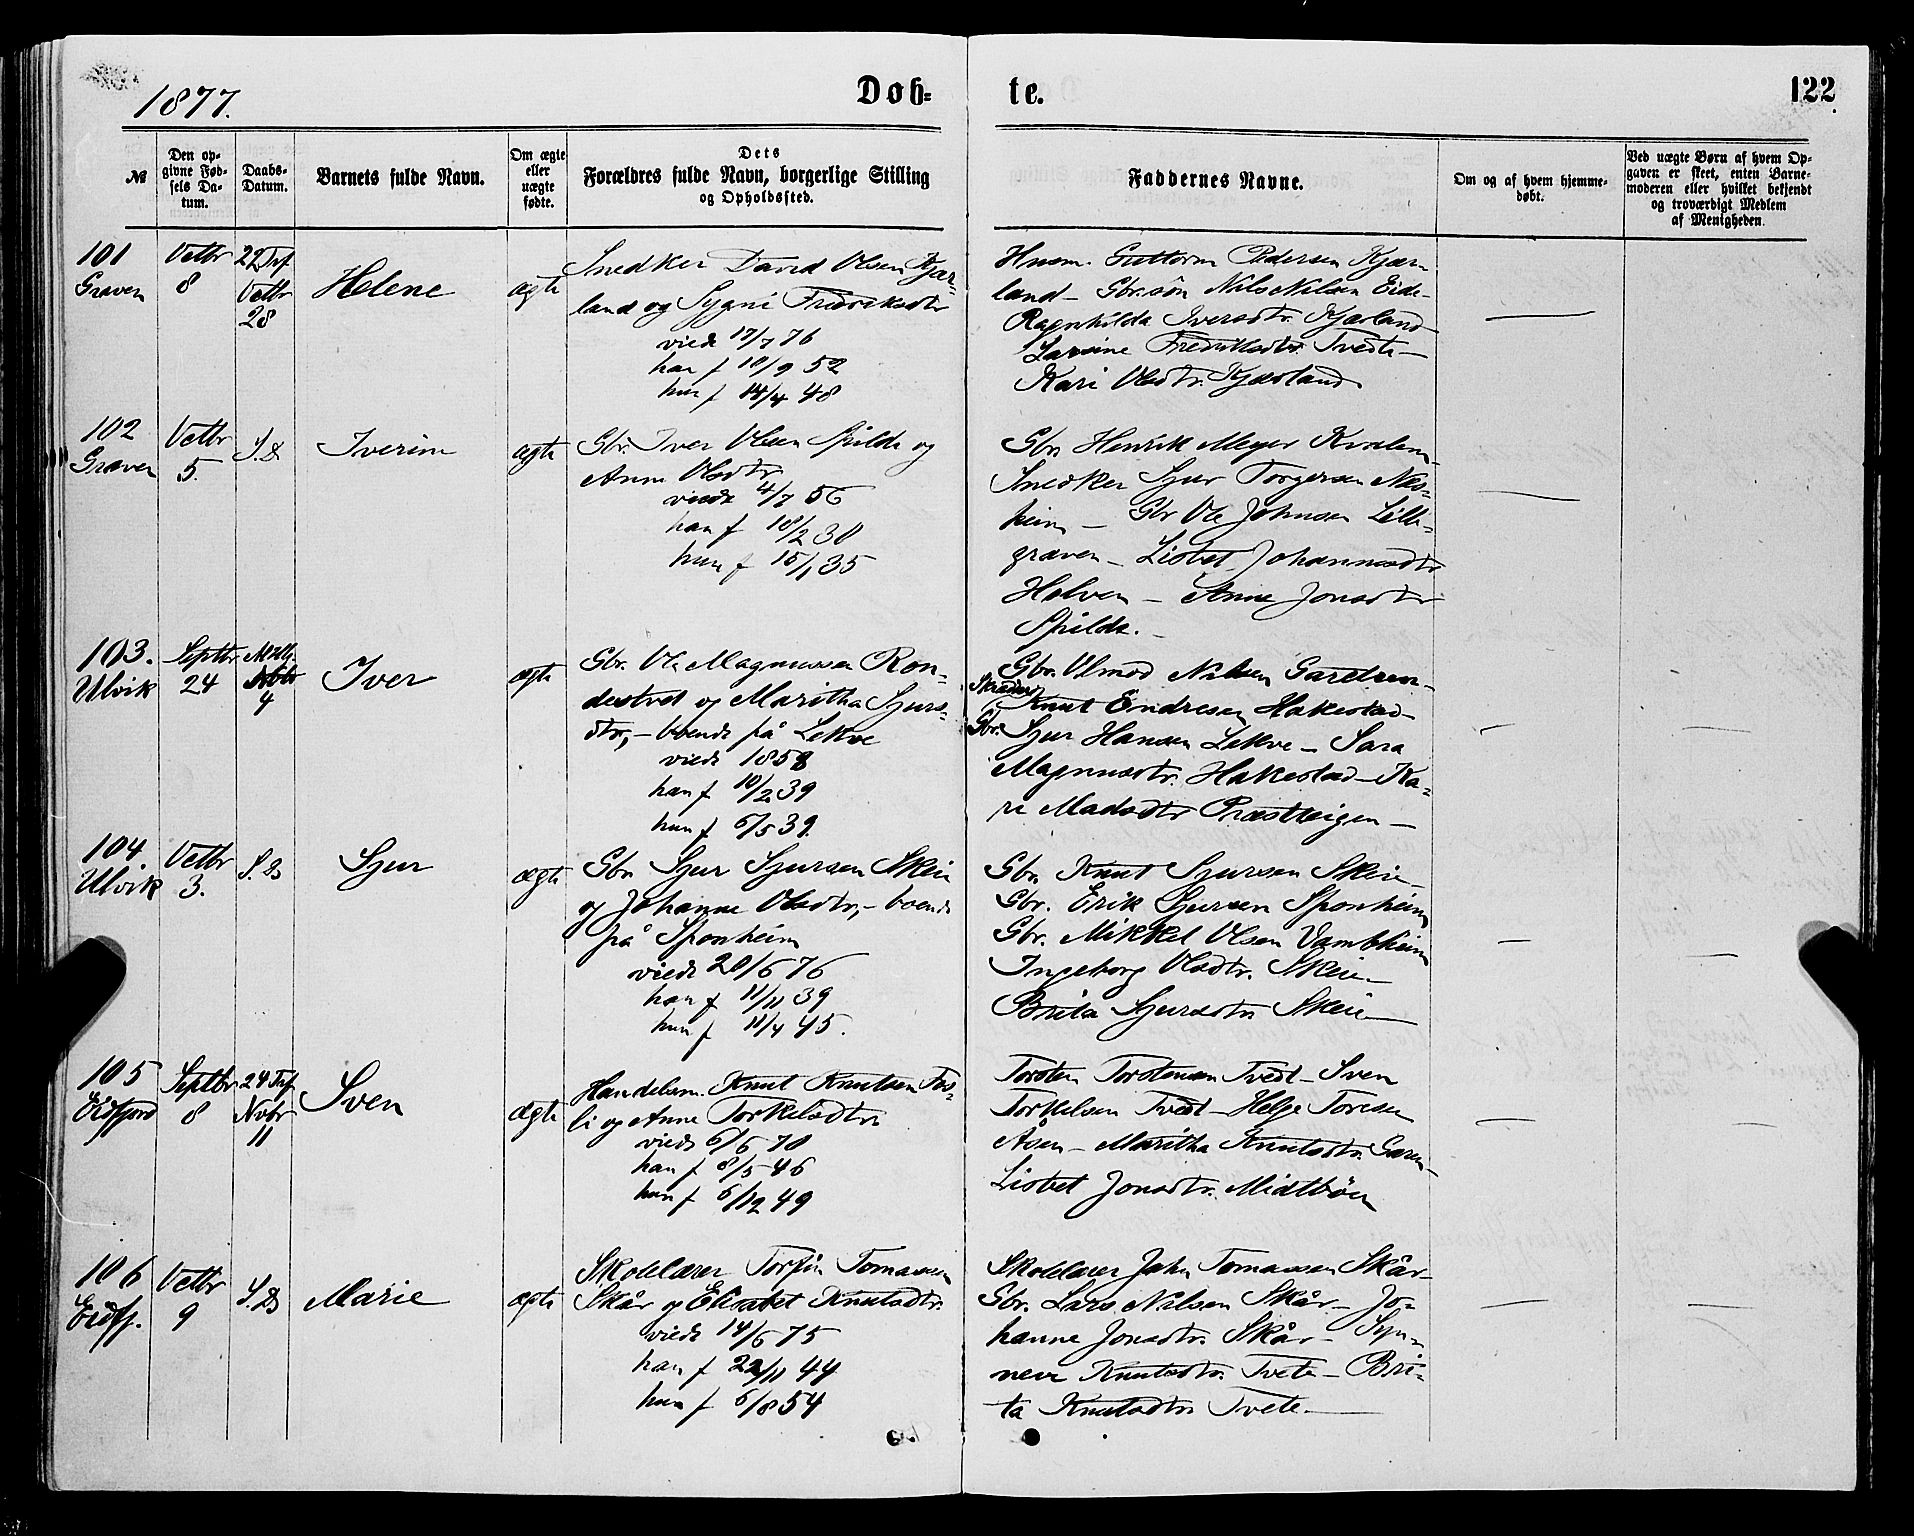 1877.
Døb-
te.
122
№
Den op-
givne Fød-
sels Da-
tum.
Daabs-
Datum.
Barnets fulde Navn.
Om ægte
eller
uægte
fødte.
Dets
Forældres fulde Navn, borgerlige Stilling
og Opholdssted.
Faddernes Navne.
Om og af hvem hjemme-
døbt.
Ved uægte Børn af hvem Op-
gaven er skeet, enten Barne-
moderen eller hvilket bekjendt
og troværdigt Medlem
af Menigheden.
101
Graven
Octbr
8
22 Trf
Octbr
28
Helene
ægte
Snedker David Olsen Kjær-
land og Sygni Fredriksdtr
viede 17/7 76
han f 18/9 52
hun f 14/4 48
Husm. Guttorm Pedersen Kjær-
land - Gbr.søn Nils Nilsen Eide-
Ragnhilda Iversdtr. Kjærland
Larsine Fredriksdtr Tvedte -
Kari Olsdtr. Kjærland
102
Graven
Octbr
5.
S.D
Iverine
ægte
Gbr. Iver Olsen Spilde og
Anna Olsdtr
viede 4/7 56
han f 18/2 30
hun f 15/1 35
Gbr Henrik Meyer Kvalem-
Snedker Sjur Torgersen Næs-
heim - Gbr Ole Johnsen Lille-
graven - Lisbet Johannesdtr
Helven - Anne Jonsdtr
Spilde.-
103.
Ulvik
Septbr
24
4
Iver
ægte
Gbr. Ole Magnussen Ron-
destvet og Maritha Sjurs-
dtr, - boende på Lekve
viede 1858
han f 10/2 39
hun f 6/5 39.
Gbr. Olmod Nilsen Garetun-
Skræder Knut Endresen Hakestad-
Gbr. Sjur Hansen Lekve - Sara
Magnusdtr. Hakestad - Ka-
ri Madsdtr Præstteigen -
104.
Ulvik
Octbr
3.
S.D
Sjur
ægte
Gbr Sjur Sjursen Skeie
og Johanne Olsdtr, - boende
på Sponheim
viede 20/6 76
han f 11/11 39
hun f 11/4 45.
Gbr. Knut Sjursen Skeie-
Gbr. Erik Sjursen Sponheim
Gbr. Mikkel Olsen Vambheim
Ingeborg Olsdtr. Skeie-
Brita Sjursdtr Skeie -
105
Eidfjord
Septbr
8
24 Trf
Nvbr
11
Sven
ægte
Handelsm. Knut Knutsen Fos-
li og Anne Torkelsdtr
viede 6/6 70
han f 8/5 46
hun f 6/12 49
Torsten Torstensen Tvedt - Sven
Torkelsen Tvedt - Helge Toresen
Åsen - Maritha Knutsdtr. Garen-
Lisbet Jonsdtr. Midtbøen
106
Eidfj.
Octbr
9
S.D
Marie
ægte
Skolelærer Torfin Tomassen
Skår og Elisabet Knutsdtr.
viede 14/6 75
han f 22/11 44
hun f 6/8 54
Skolelærer John Tomassen Skår-
Gbr. Lars Nilsen Skår - Jo-
hanne Jonsdtr. Skår - Syn-
neve Knutsdtr. Tvete - Bri-
ta Knutsdtr Tvete -